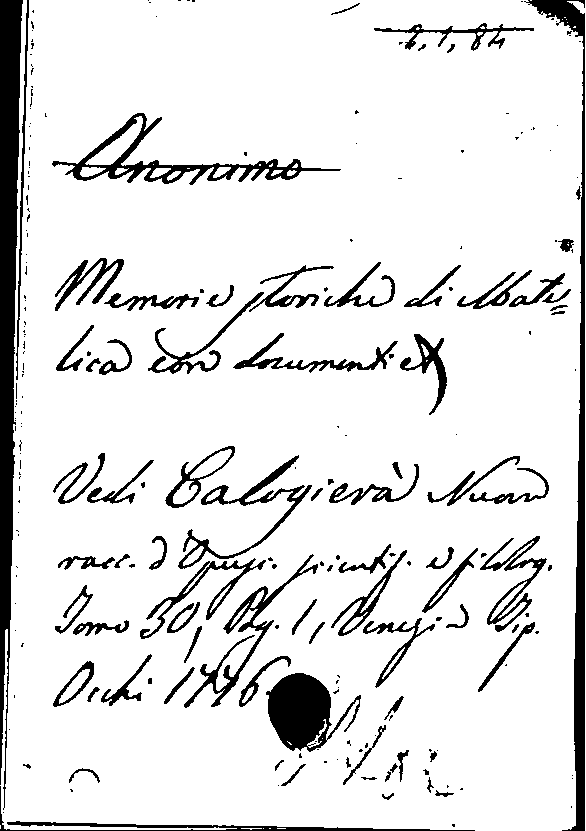 2, 1, 84
Anonimo
Memorie storiche di Mate=
lica con documenti
Vedi Calogierà Nuova
racc. d'Opusc. scientif. e filolog.
Tomo 30, Pag. 1, Venezia Tip.
Occhi 1776.